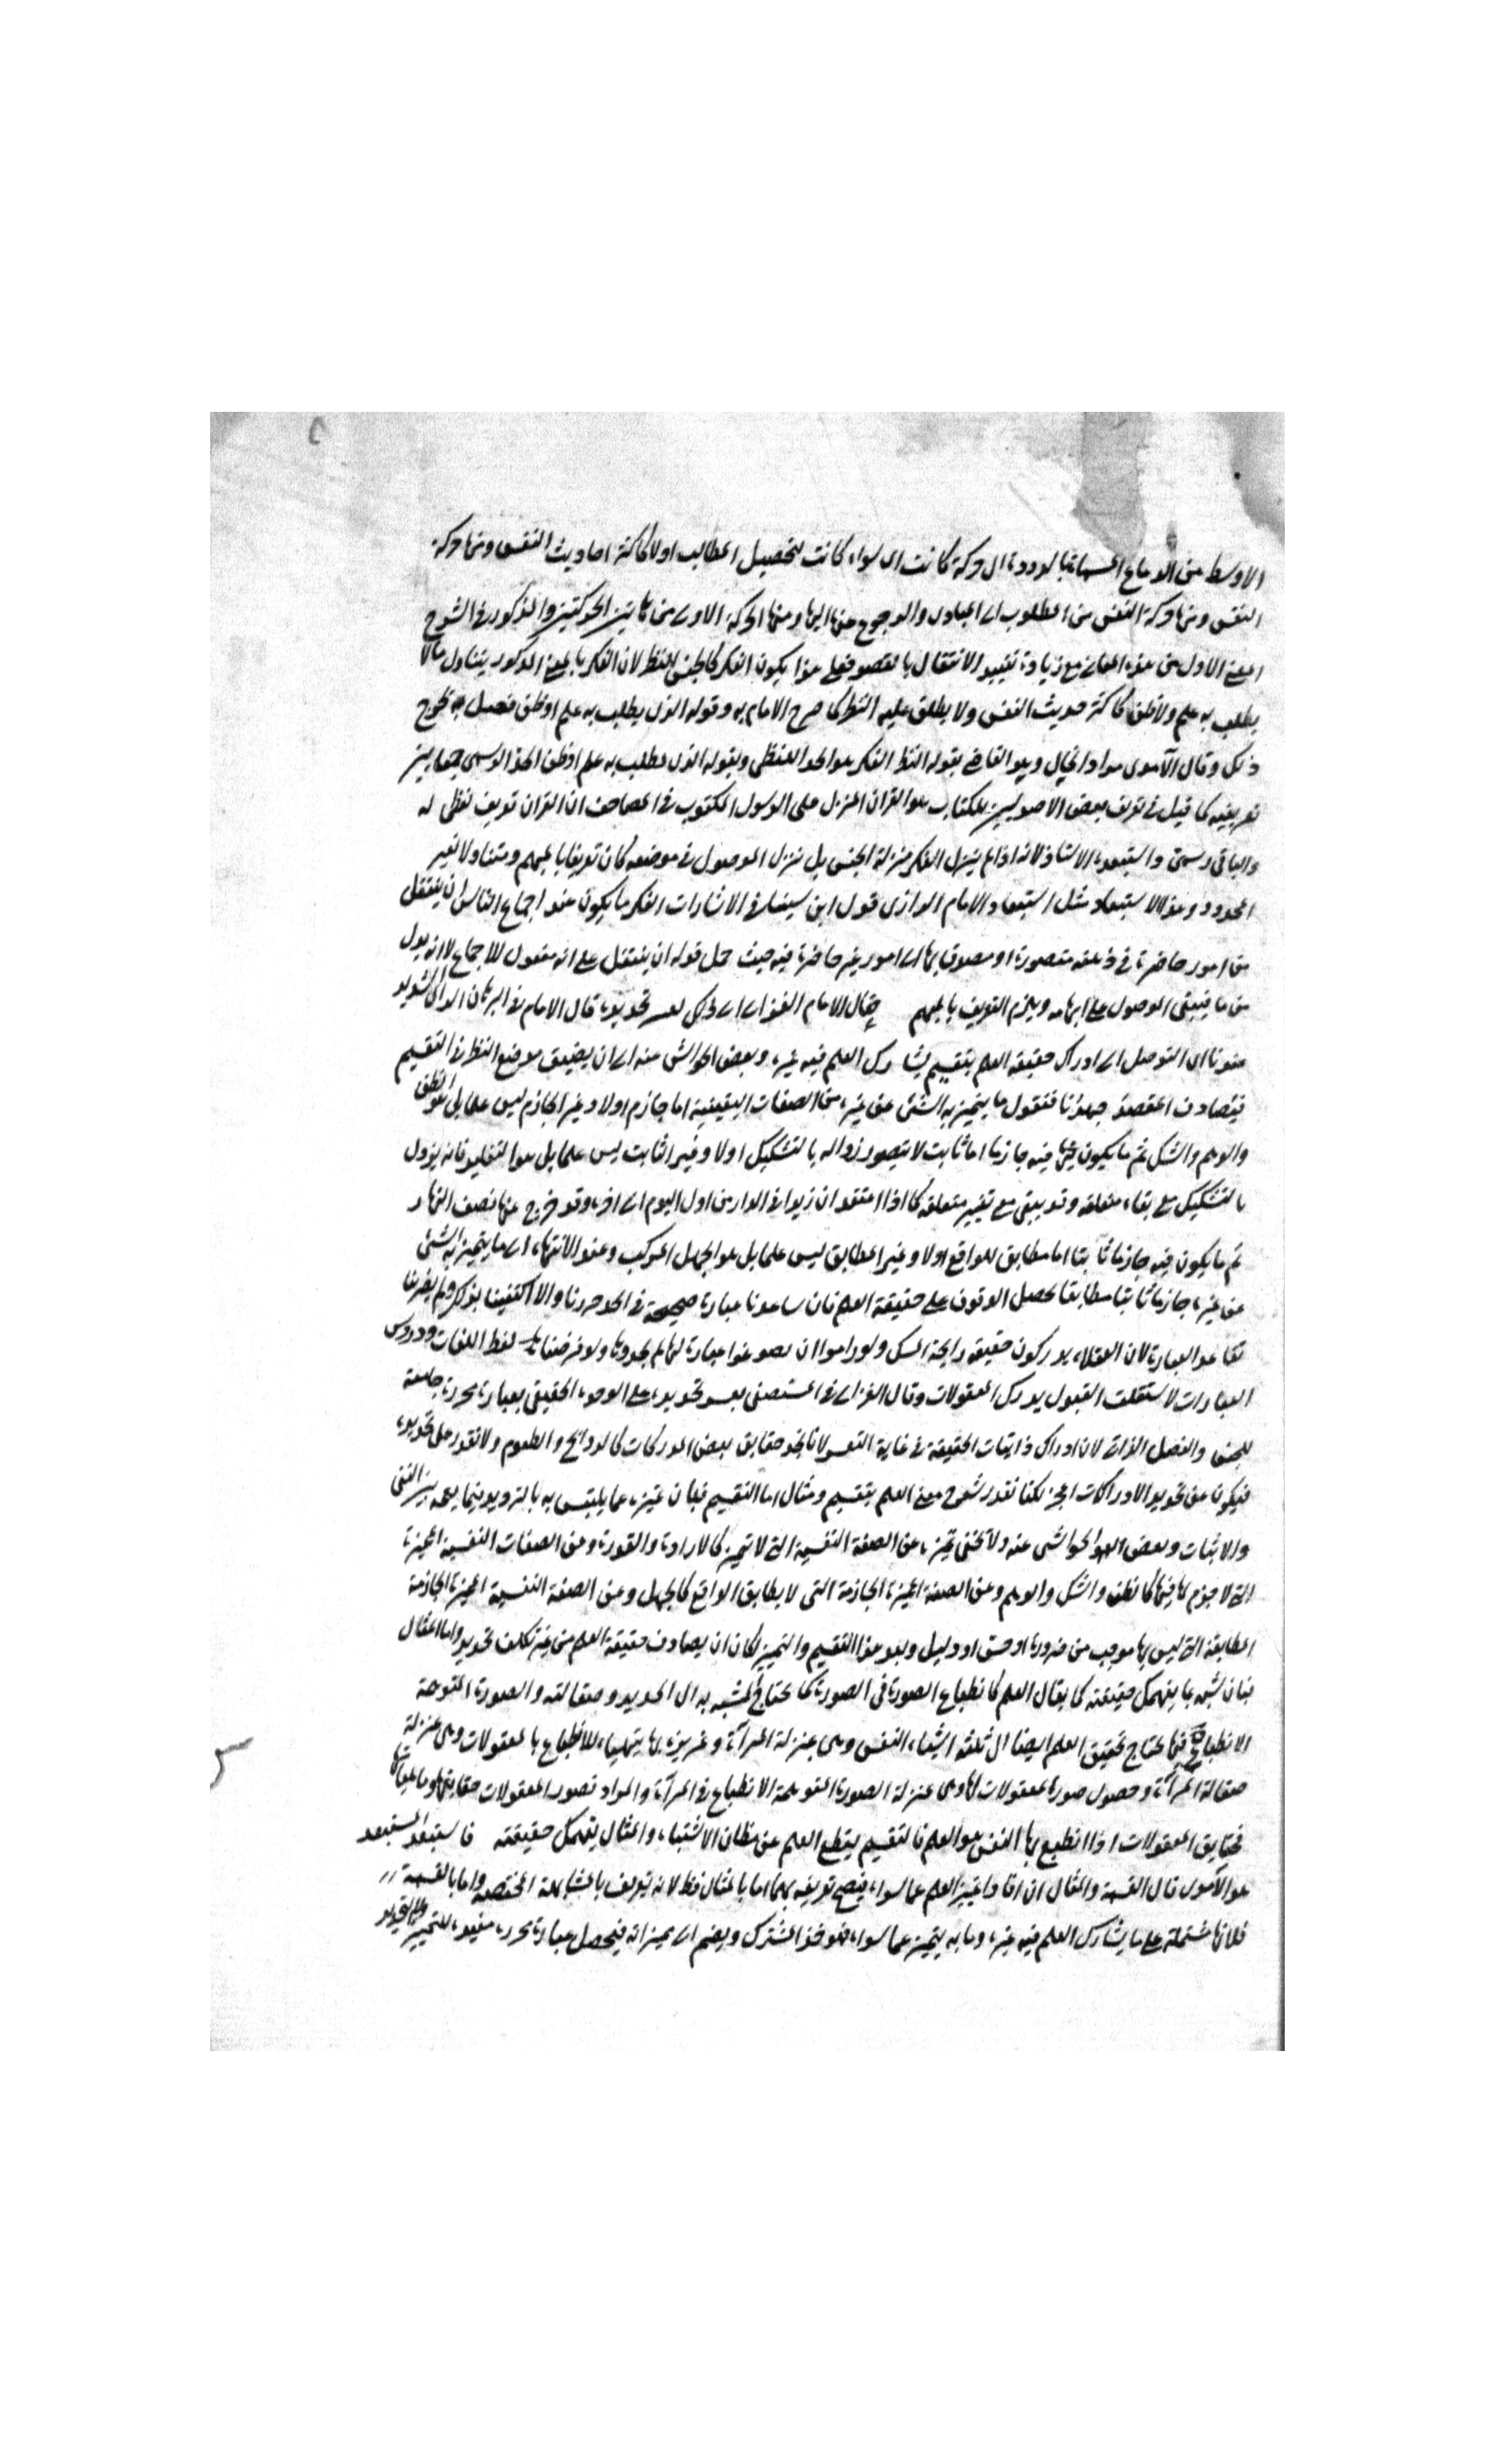 الاوسط من الدماغ المسماة بالدودة اى حركة كانت اى سواء كانت لتحصيل المطالب اولا كاكثر احاديث النفس ومنها حركة
النفس ومنها حركة النفس من المطلوب الى المبادى والرجوع منها اليها ومنها الحركة الاولى من هاتين الحركتين والمذكور فى الشرح
المعنى الاول من هذه المعانى مع زيادة تقييد الانتقال بالقصد فعلى هذا يكون الفكر كالجنس للنظر لان الفكر بالمعنى المذكور يتناول مالا
يطلب به علم ولا ظن كاكثر حديث النفس ولا يطلق عليه النظر كما صرح الامام به وقوله الذى يطلب به علم او ظن فصل به يخرج
ذلك وقال الآمدى مراد القاضى بقوله النظر الفكر هو الحد اللفظى وبقوله الذى يطلب به علم او ظن الحد الرسمى جمعا بين
تعريفيه كما قيل فى تعريف بعض الاصوليين للكتاب هو القران المنزل على الرسول المكتوب فى المصاحف ان القران تعريف لفظى له
والباقى رسمى واستبعده الاستاذ لانه اذا لم ينزل الفكر منزلة الجنس بل نزل الموصول فى موضعه كان تعريفا بالمبهم ومتناولا لغير
المحدود وهذا الاستبعاد مثل استبعاد الامام الرازى قول ابن سينا فى الاشارات الفكر ما يكون عند اجماع الناس ان ينتقل
من امور حاضرة فى ذهنه متصورة او مصدق بها الى امور غير حاضرة فيه حيث حمل قوله ان ينتقل على انه مفعول للاجماع لا انه بدل
من ما فيبقى الموصول على ابهامه ويلزم التعريف بالمبهم فقال الامام الغزالى الى لعسر تحديده قال الامام فى البرهان الراى السديد
عندنا ان التوصل الى ادراك حقيقة العلم بتقسيم يشارك العلم فيه غيره وبعض الحواشى عنه الى ان يضيق موضع النظر فى التقسيم
فيصادف المقصد جهدنا فنقول ما يتميز به الشئ عن غيره من الصفات اليقينية اما جازم اولا وغير الجازم ليس علما بل هو الظن
والوهم والشك ثم ما يكون فيه جازما اما ثابت لا يتصور زواله بالتشكيك اولا وغير الثابت ليس علما بل هو التقليد فانه يزول
بالتشكيك مع بقاء متعلقه وقد يبقى مع تغير متعلقه كما اذا اعتقد ان زيدا فى الدار من اول اليوم الى اخره وقد خرج عنها نصف النهار
ثم ما يكون فيه جازما ثابتا اما مطابق للواقع اولا وغير المطابق ليس علما بل هو الجهل المركب وعند الانتهاء الى ما يتميز به الشئ
عن غيره جازما ثابتا مطابقا يحصل الوقوف على حقيقة العلم فان ساعدنا عبارة صحيحة فى الحد حررنا والا اكتفينا بذلك ولم يضرنا
تقاعد العبارة لان العقلاء يدركون حقيقة رائحة المسك ولو راموا ان يصوغوا عبارة لها لم يجدوها ولو فرضنا لفظ اللغات ودروس
العبارات لاستقلت العقول بدرك المعقولات وقال الغزالى فى المستصفى يعسر تحديده على الوجه الحقيقى بعبارة محررة جامعة
للجنس والفصل الذاتى لان ادراك ذاتيات الحقيقة فى غاية التعسر لانا نجد حقايق بعض المدركات كالروائح والطعوم ولا نقدر على تحديده
فيكون عن تحديد الادراكات اعجز لكنا نقدر شرح معنى العلم بتقسيم ومثال اما التقسيم فبان نميزه عما يلتبس به بالترديد بينما يعمه بين النفى
والاثبات وبعض الحواشى عنه ولا يخفى تميزه عن الصفة النفسية التى لا تميز كالارادة والقدرة وعن الصفات النفسية المميزة
التى لا جزم لها فيها كالظن والشك والوهم وعن الصفة المميزة الجازمة التى لا يطابق الواقع كالجهل وعن الصفة النفسية المميزة الجازمة
المطابقة التى ليس لها موجب من ضرورة او حس او دليل وبعد هذا التقسيم والتمييز لكان ان يصادف حقيقة العلم من غير تكلف تحديد واما المثال
فبان نشبه بما يفهمك حقيقته كما يقال العلم كانطباع الصورة فى الصورة كما يحتاج المشبه به الى الحديد وصقالته والصورة المتوجهة
الانطباع فيها يحتاج تحقيق العلم ايضا الى ثلثة اشياء النفس وهى بمنزلة المرآة وغريزة بها يتهيياء للانطباع بالمعقولات وهى بمنزلة
صقالة المرآة وحصول صورة المعقولات لها وهى بمنزلة الصورة المتوجهة الانطباع فى المرآة والمراد بصور المعقولات حقايقها وماهياتها
فحقايق المعقولات اذا انطبع بها النفس هو العلم فالتقسيم يقطع العلم عن مظان الاشتباه والمثال يفهمك حقيقته فاستبعد المستبعد
هو الآمدى قال القسمة والمثال ان افادا تمييز العلم عما سواه فيصح تعريفه بهما اما بالمثال فظ لانه تعريف بالمشابهة المختصة واما بالقسمة
فلانها مشتملة على ما يشارك العلم فيه غيره وما به يتميز عما سواه فهو خذ المشترك ويضم الى مميزاته فيحصل عبارة محررة مفيدة للتمييز